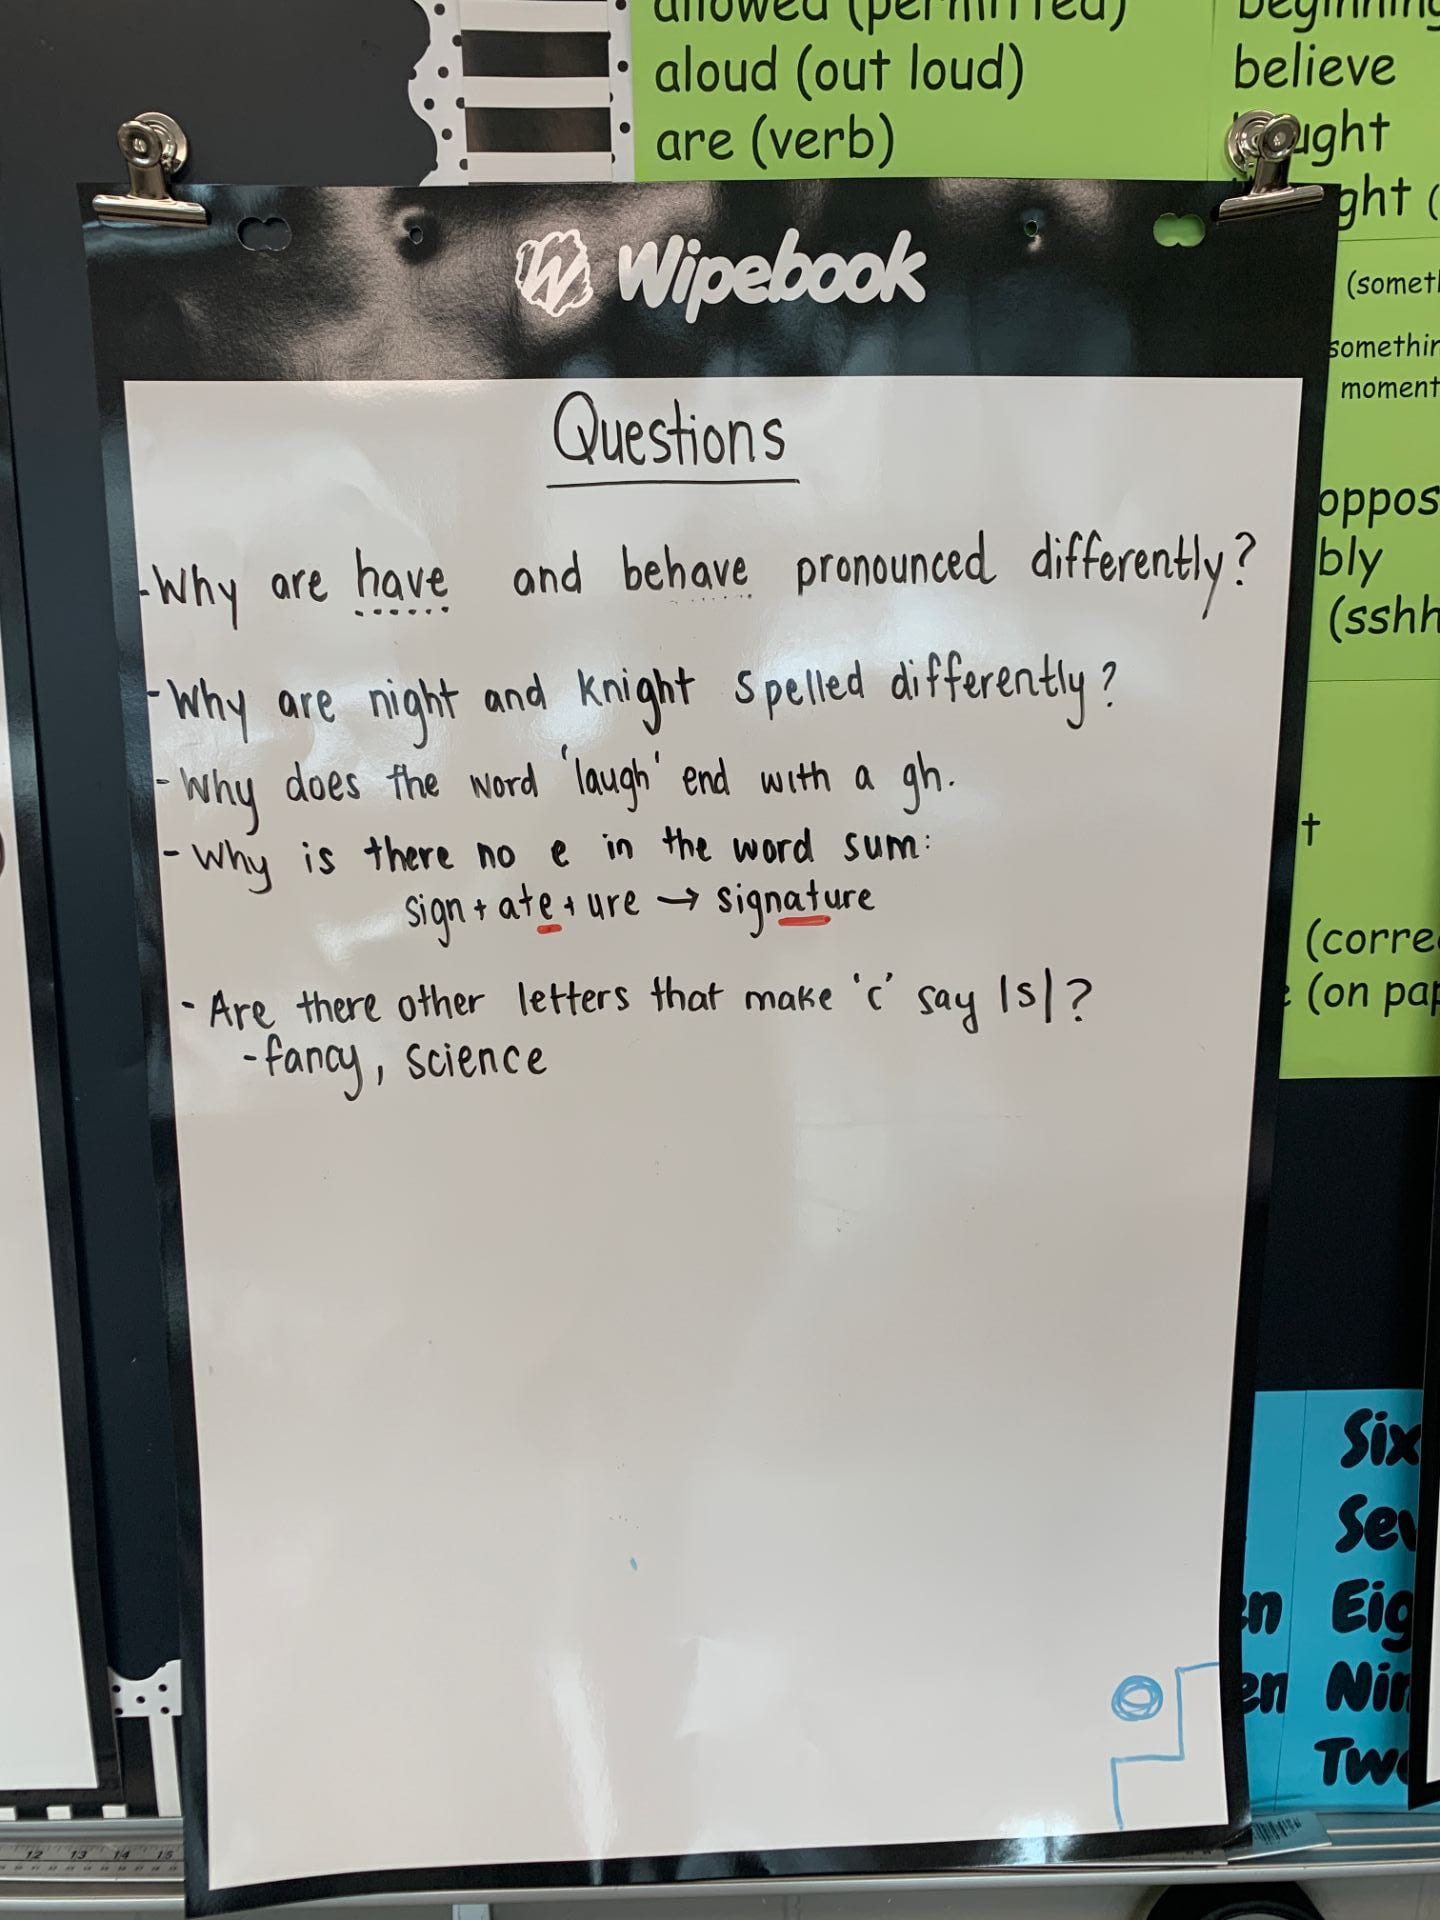 allowed (permitted)
aloud (out loud)
are (verb)
beginning
believe
ght (
(someth
somethin
moment
oppos
bly
(sshh
t
(corre
(on pap
Wipebook
Questions
-Why are have and behave pronounced differently?
-Why are night and knight spelled differently?
-Why does the word 'laugh' end with a gh.
-Why is there no e in the word sum:
sign + ate + ure → signature
-Are there other letters that make 'c' say |s|?
-fancy, science
Six
Sev
en Eig
en Nin
Twe
12 13 14 15